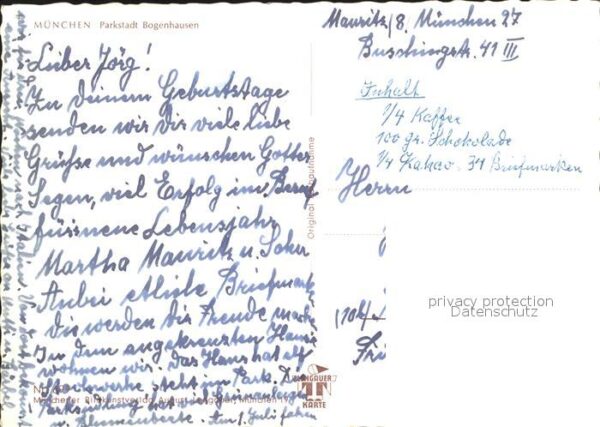 MÜNCHEN Parkstadt Bogenhausen
Lieber Jörg!
Zu deinem Geburtstage
senden wir Dir viele liebe
Grüße und wünschen Gottes
Segen, viel Erfolg im Beruf
fürs neue Lebensjahr
Martha Mauritz u. Sohn
Anbei etliche Briefmark
die werden dir Freude mach
In dem angekreuzten Hause
wohnen wir. Das Haus hat
Stockwerke steht im Park. Die
Parksiedlung hat viel
u. Blumenbeete. Am 1. Juli fahren
wir für nach Italien. Von dort bekommt
Münchener Bildkunstverlag August Lengauer, München
Original
LENGAUER
KARTE
Mauritz/8. München 27
Buschingstr. 41 III
Inhalt
1/4 Kaffee
100 gr. Schokolade
1/4 Kakao. 31 Briefmarken
Herrn
(10b
privacy protection
Datenschutz